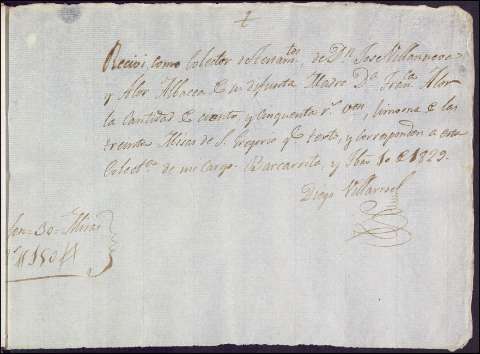 Recivi, como Colector de Testam.tos de D.n Jose Villanueva
y Alor Albacea de su difunta Madre D.a Fran.ca Alor
la cantidad de ciento, y cinquenta r.s von, limosna de las
treinta Misas de S. Gregorio q.e testó, y corresponden a esta
Colect.a de mi cargo. Barcarrota, y Feb.o 10 de 1829.
Diego Villarroel
Son=30=Misas
150